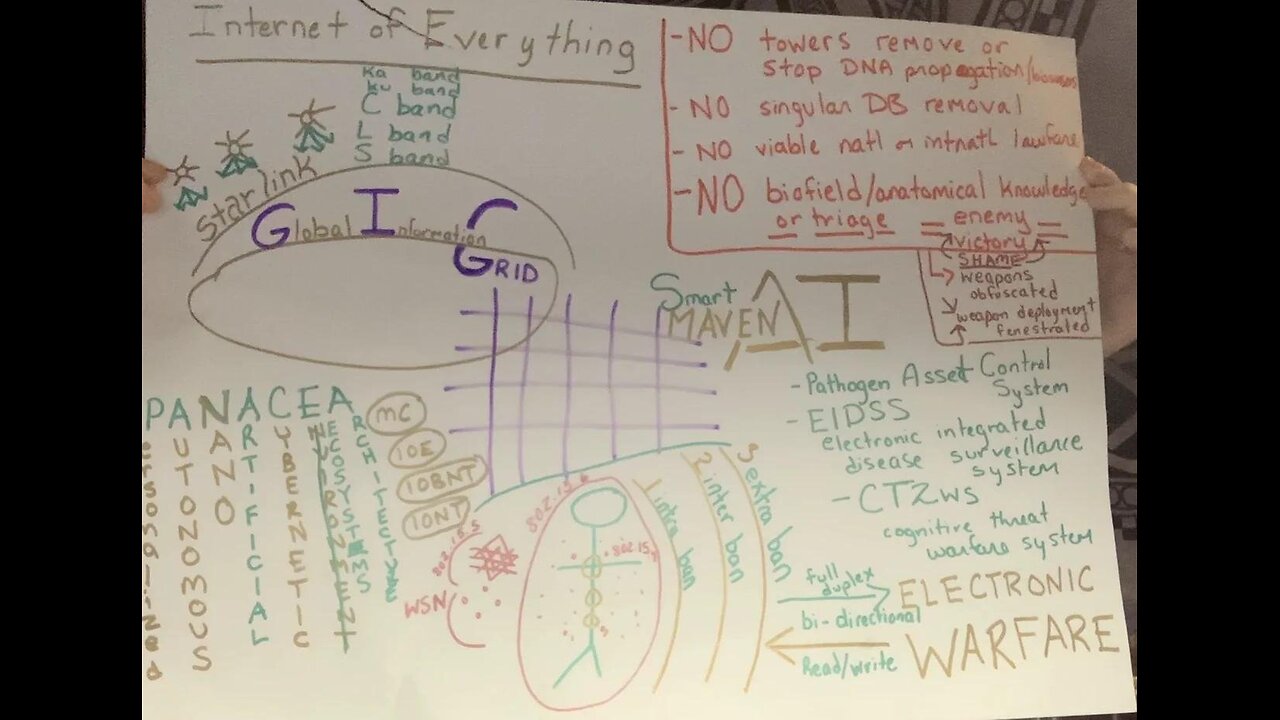 Internet of Everything
Ka band
Ku band
C band
L band
S band
Starlink
Global Information
GRID
-NO towers remove or
stop DNA propagation/
- NO singular DB removal
- NO viable natl or intnatl lawfare
-NO biofield/anatomical knowledge
or triage = enemy =
victory
SHAME
weapons
obfuscated
weapon deployment
fenestrated
Smart
MAVEN AI
- Pathogen Asset Control
System
- EIDSS
electronic integrated
disease surveillance
system
- CTZWS
cognitive threat
warfare system
PANACEA
AUTONOMOUS
NANO
ARTIFICIAL
CYBERNETIC
ECOSYSTEMS
ENVIRONMENT
ARCHITECTURE
MC
IOE
IOBNT
IONT
802.15.5
WSN
802.15.6
802.15.4
1 intra ban
2 inter ban
3 extra ban
full
duplex
bi-directional
Read/write
ELECTRONIC
WARFARE